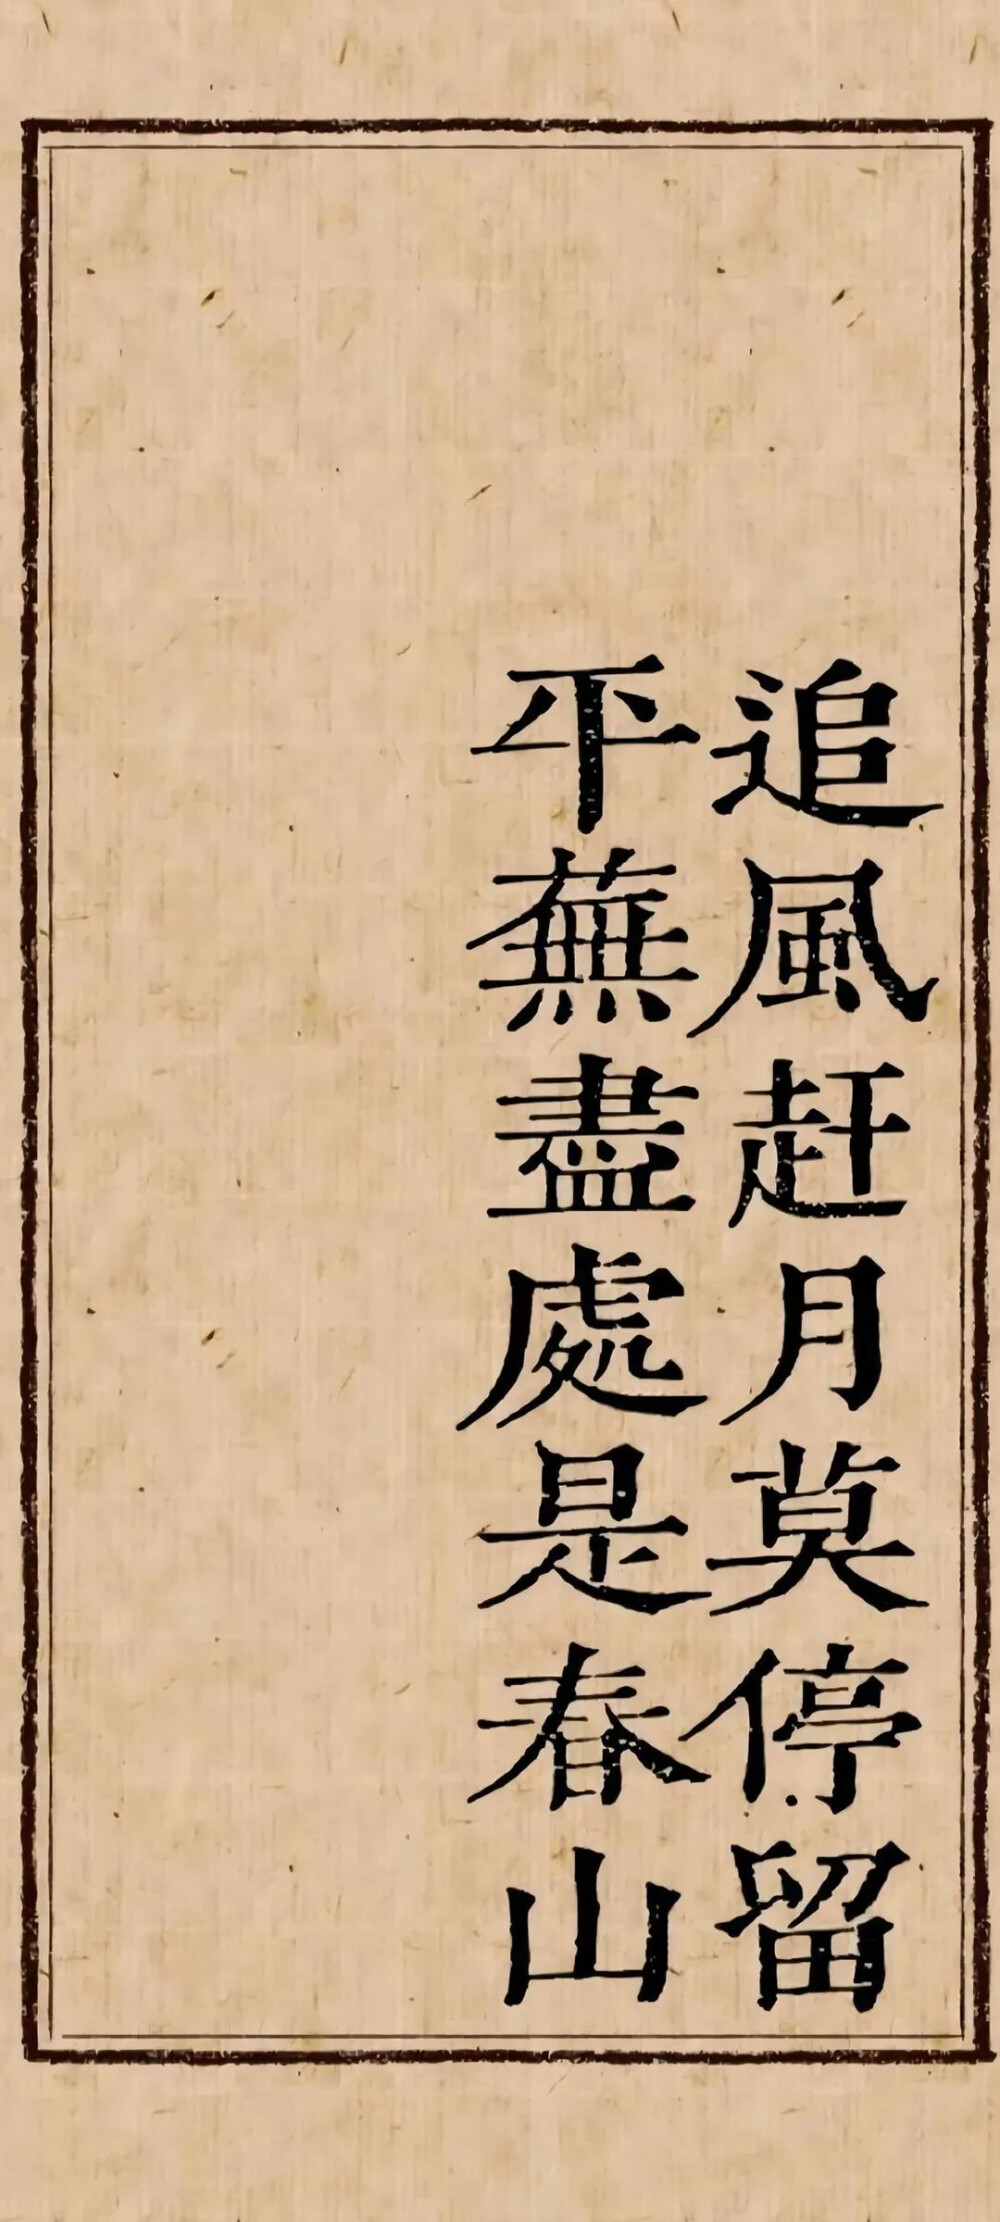 追風赶月莫停留
平蕪盡處是春山